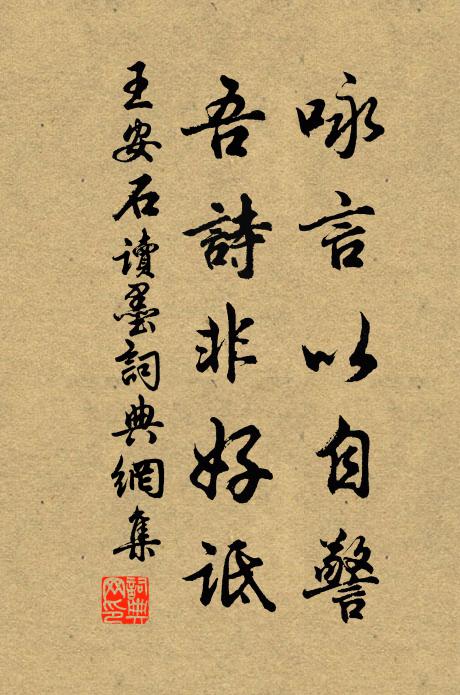 咏言以自警
吾詩非好詆
王安石讀墨詞典網集
詞典网印